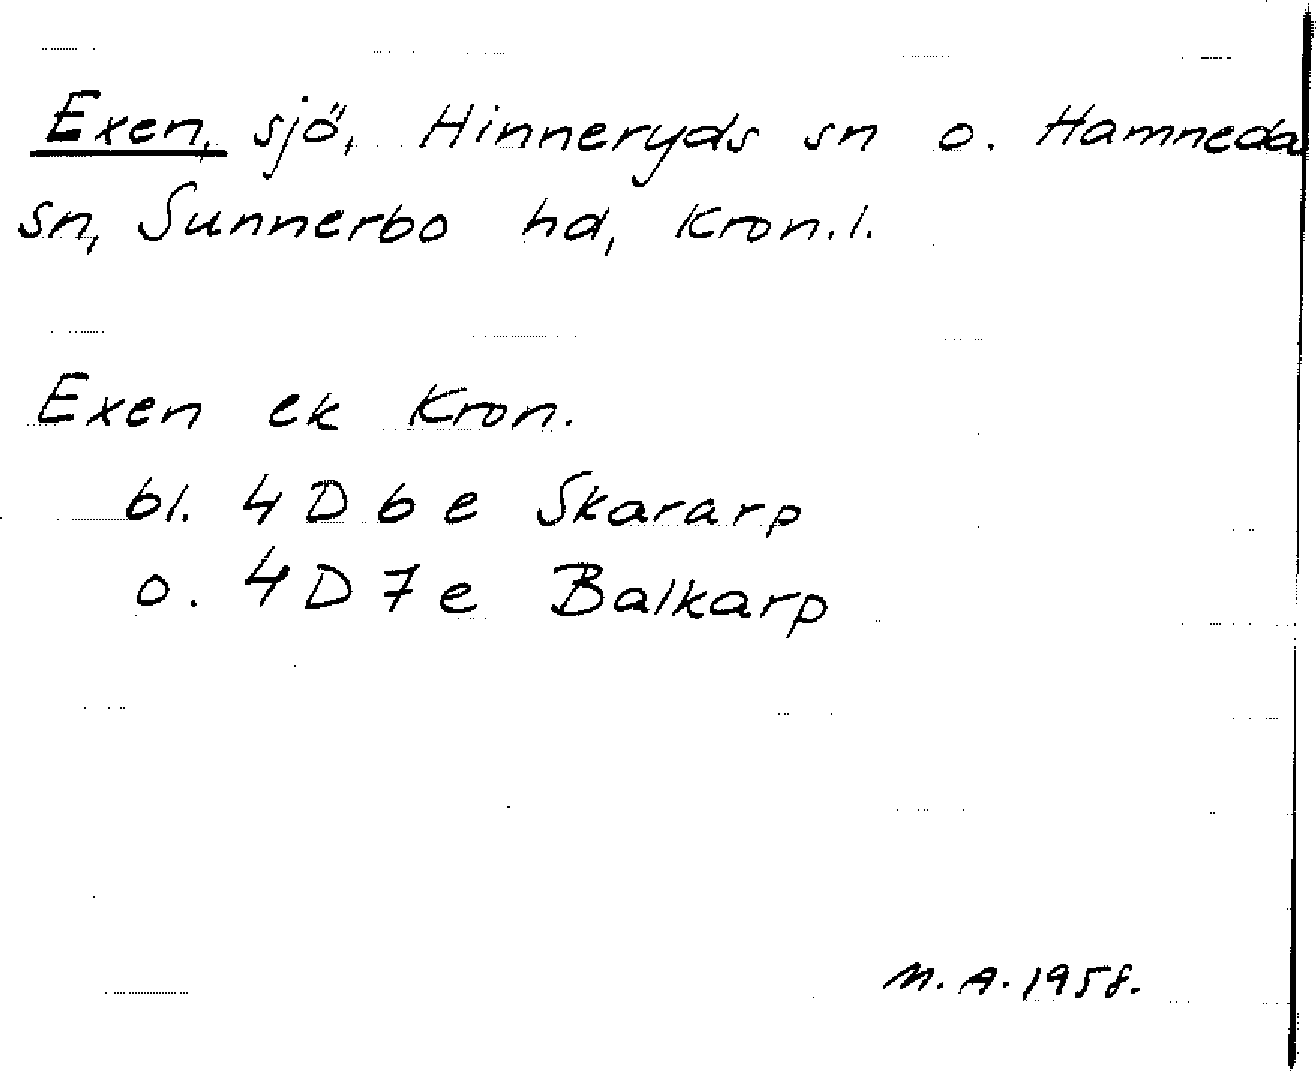 Exen, sjö, Hinneryds sn o. Hamneda
sn, Sunnerbo hd, Kron.l.
Exen ek Kron.
bl. 4 D 6 e Skararp
o. 4 D 7 e Balkarp
M.A. 1958.